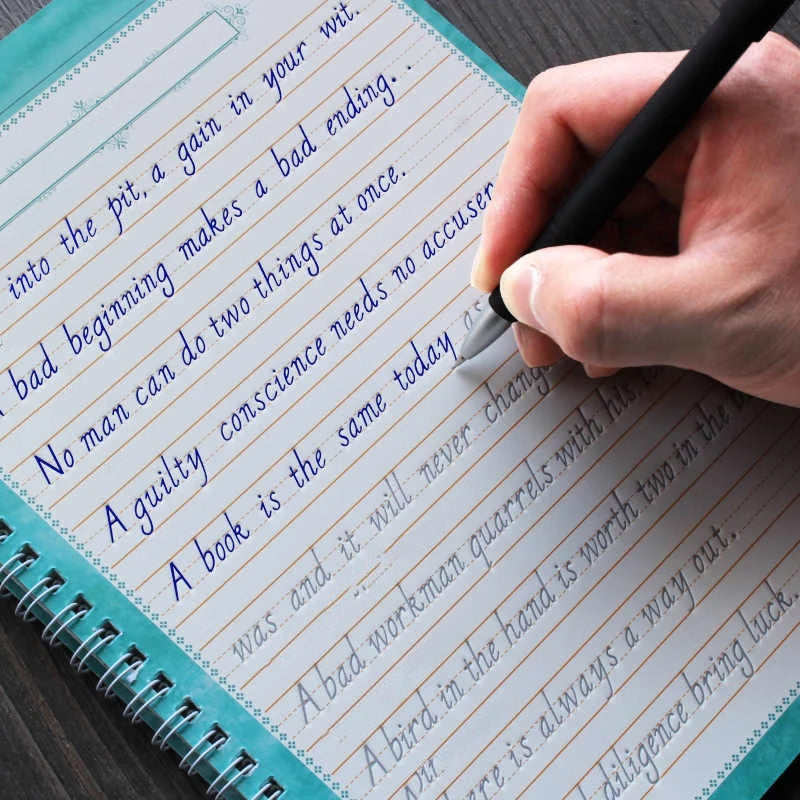 into the pit, a gain in your wit.
bad beginning makes a bad ending. .
No man can do two things at once.
A guilty conscience needs no accuser
A book is the same today as
was and it will never change
A bad workman quarrels with his
A bird in the hand is worth two in the
ere is always a way out.
diligence bring luck.